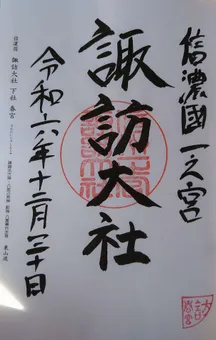 信濃國一之宮
諏訪大社
令和六年十二月二十日
信濃國 諏訪大社 下社 春宮